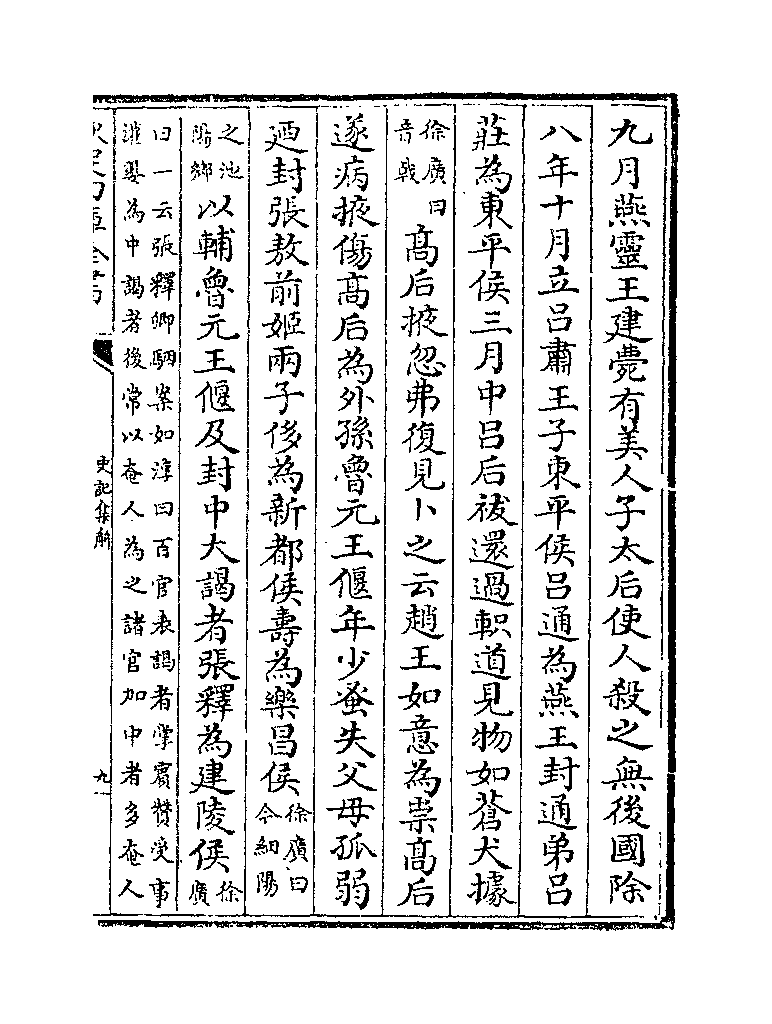 九月燕靈王建薨有美人子太后使人殺之無後國除
八年十月立吕肅王子東平侯吕通為燕王封通弟吕
莊為東平侯三月中吕后祓還過軹道見物如蒼犬據
徐廣曰
音戟
高后掖忽弗復見卜之云趙王如意為祟高后
遂病掖傷高后為外孫魯元王偃年少蚤失父母孤弱
廼封張敖前姬兩子侈為新都侯壽為樂昌侯
徐廣曰
今細陽
之池
陽鄉
以輔魯元王偃及封中大謁者張釋為建陵侯
徐
廣
曰一云張釋卿駰案如淳曰百官表謁者掌賓贊受事
灌嬰為中謁者後常以奄人為之諸官加中者多奄人
史記集解
九